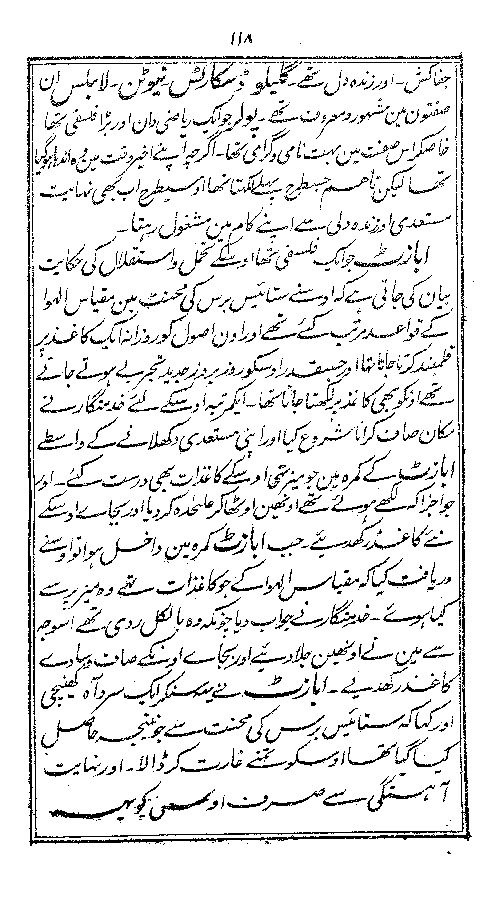 ۱۱۸
جفاکش ۔ اور زندہ دل تھے ۔ گلیلو ڈسکارٹس ۔ نیوٹن ۔ لاپلس ان
صفتون مین مشہور و معروف تھے ۔ یولر جو ایک ریاضی دان اور بڑا فلسفی تھا
خاصکر اس صفت مین بہت نامی و گرامی تھا ۔ اگرچہ اپنے اخیر وقت مین وہ اندھا ہوگیا
تھا لیکن تاہم جسطرح پہلے لکھتا تھا اوسیطرح اب بھی نہایت
مستعدی اور زندہ دلی سے اپنے کام مین مشغول رہتا ۔
ابازٹ جو ایک فلسفی تھا اوسکے تحمل و استقلال کی حکایت
بیان کی جاتی ہے کہ اوسنے ستائیس برس کی محنت مین مقیاس الہوا
کے قواعد مرتب کئے تھے اور اون اصول کو روزانہ ایک کاغذ پر
قلمبند کرتا جاتا تھا اور جسقدر اوسکو روز بروز جدید تجربے ہوتے جاتے
تھے اونکو بھی کاغذ پر لکھتا جاتا تھا ۔ ایکمرتبہ اوسکے نئے خدمتگار نے
مکان صاف کرنا شروع کیا اور اپنی مستعدی دکھلانے کے واسطے
ابازٹ کے کمرہ مین جو میز تھی اوسکے کاغذات بھی درست کئے ۔ اور
جو اجزا کہ لکھے ہوئے تھے اونھین اوٹھا کر علٰحدہ کر دیا اور بجاے اوسکے
نئے کاغذ رکھدیئے ۔ جب ابازٹ کمرہ مین داخل ہوا تو اوسنے
دریافت کیا کہ مقیاس الہوا کے جو کاغذات تھے وہ میز پر سے
کیا ہوئے ۔ خدمتگار نے جواب دیا چونکہ وہ بالکل ردی تھے اسوجہ
سے مین نے اونھین جلا دیئے اور بجاے اونکے صاف و سادے
کاغذ رکھدیے ۔ ابازٹ نے یہ سنکر ایک سرد آہ کھینچی
اور کہا کہ ستائیس برس کی محنت سے جو نتیجہ حاصل
کیا گیا تھا اوسکو تمنے غارت کر ڈالا ۔ اور نہایت
آہستگی سے صرف اوسی کو یہہ